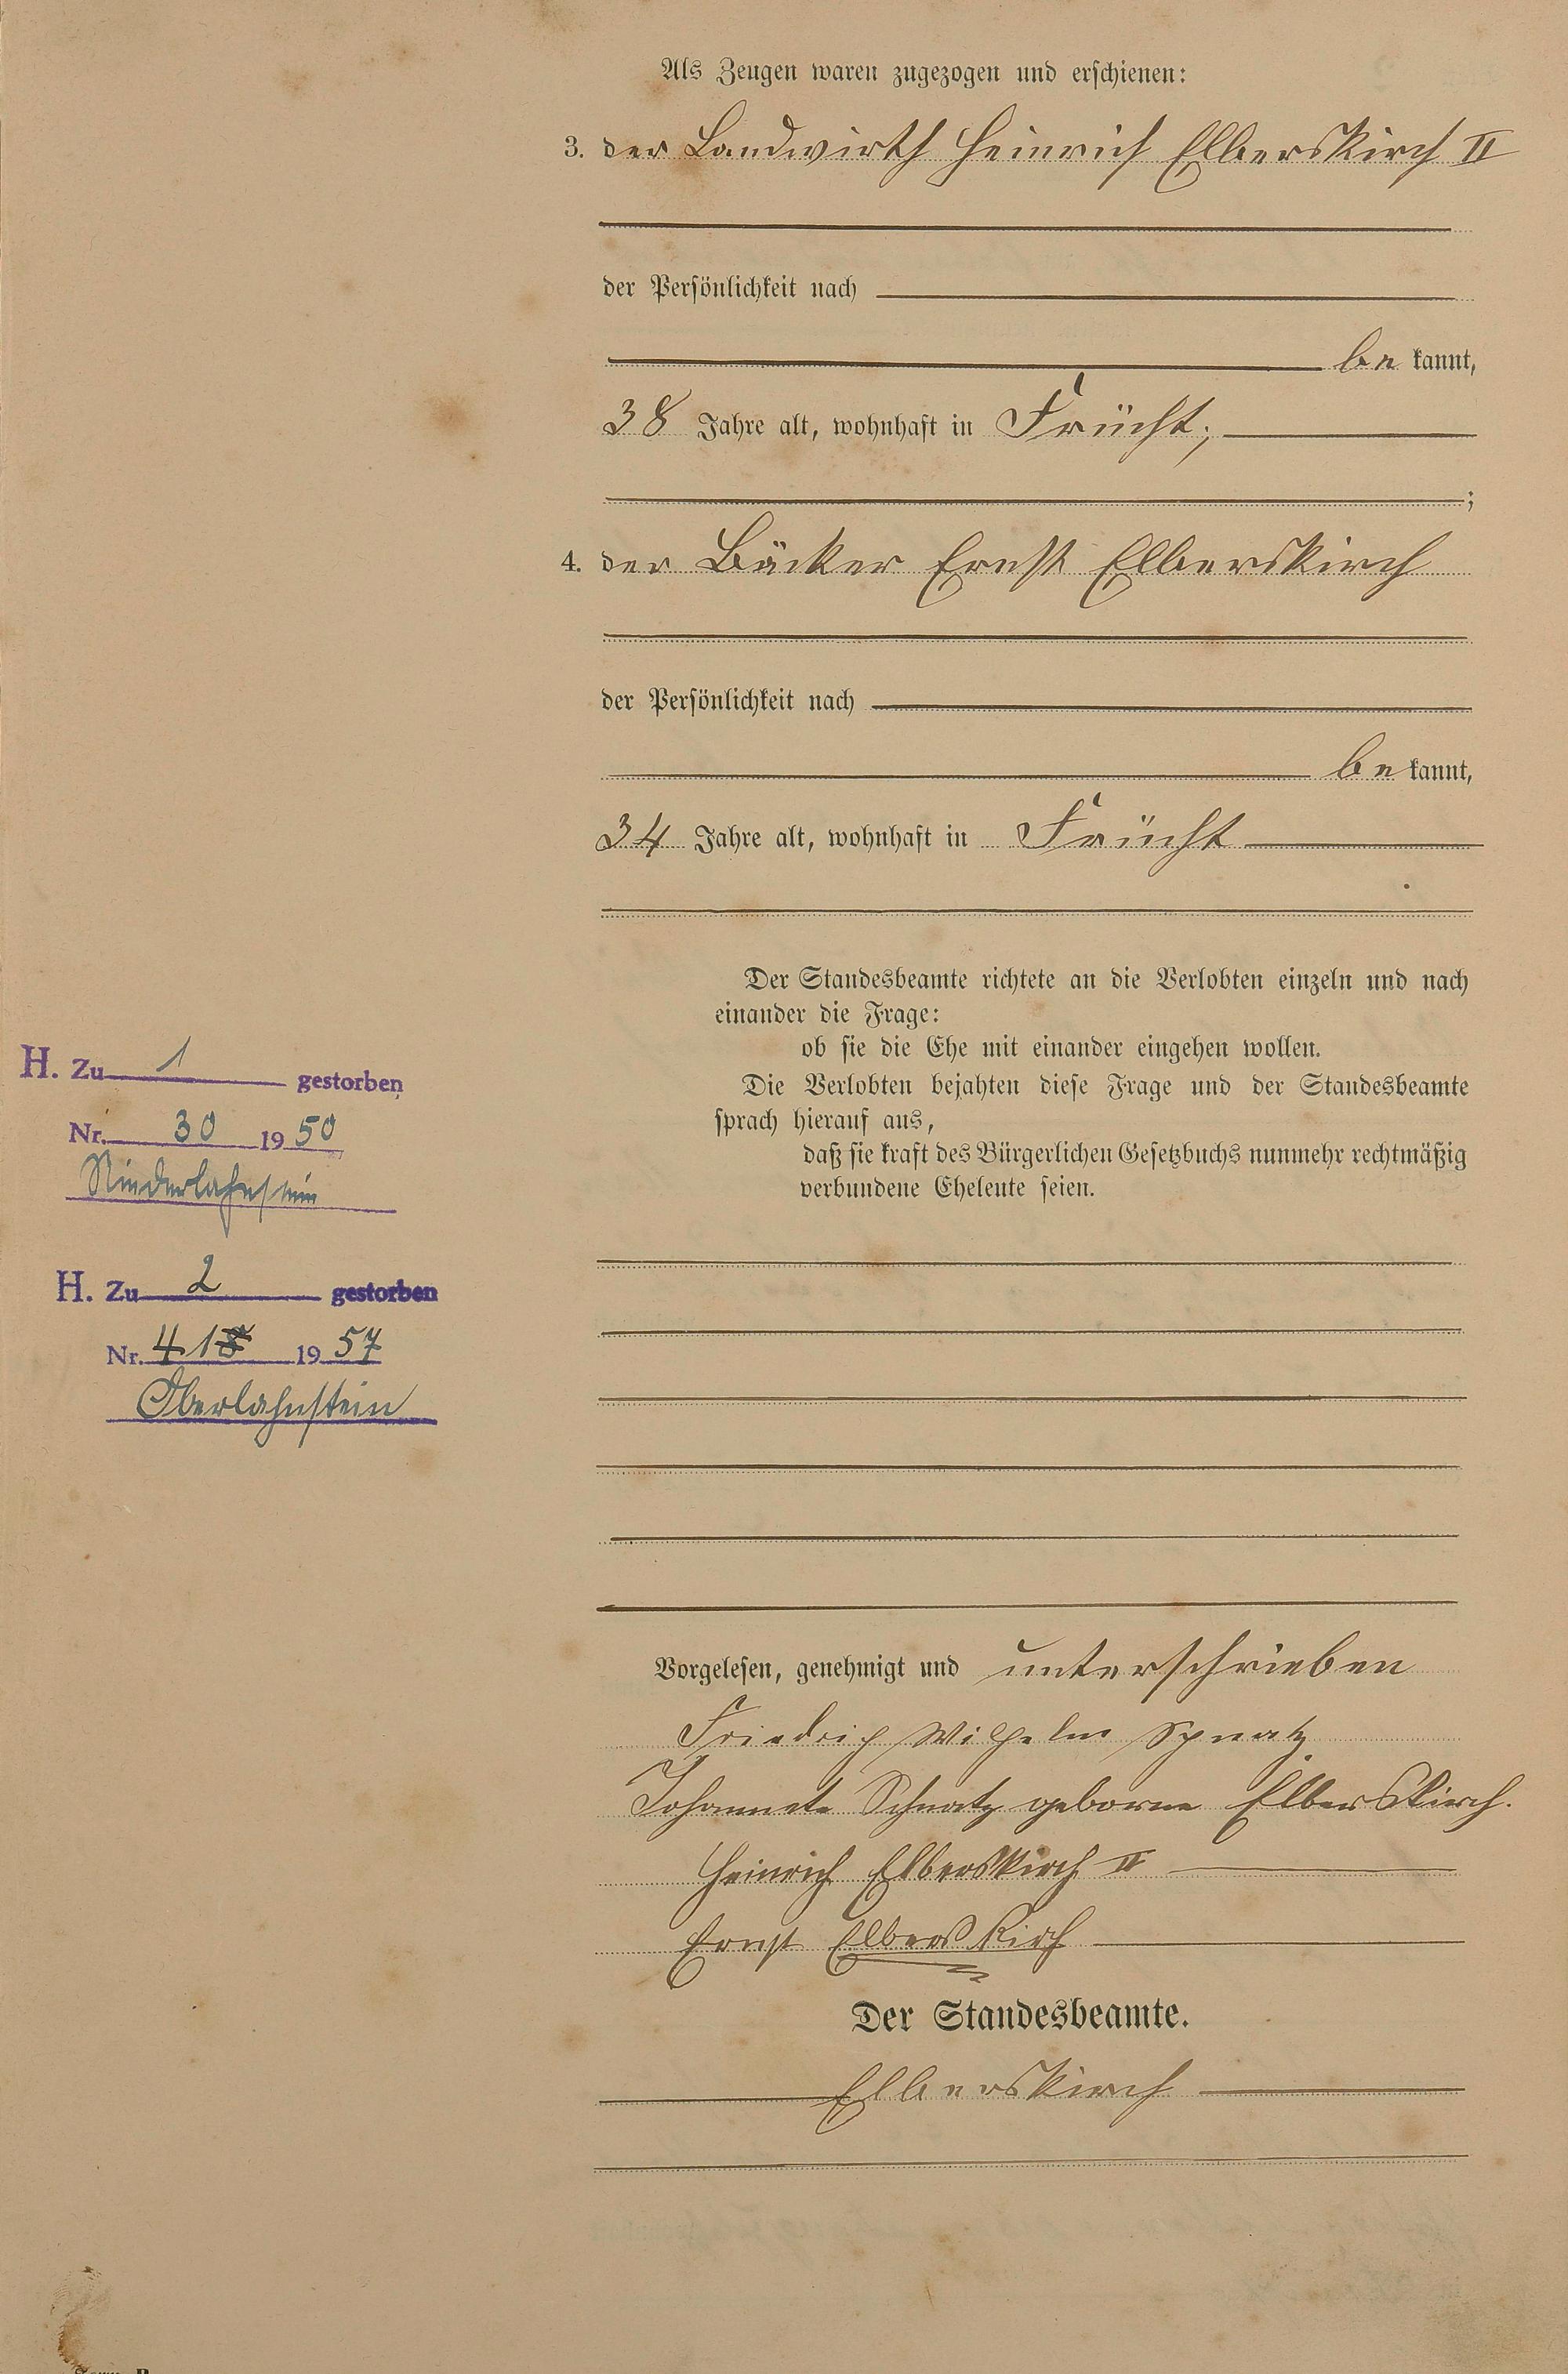 Als Zeugen waren zugezogen und erschienen:
3. der Landwirth Heinrich Elberskirch II
der Persönlichkeit nach
be kannt,
38 Jahre alt, wohnhaft in Frücht;
;
4. der Bäcker Ernst Elberskirch
der Persönlichkeit nach
be kannt,
34 Jahre alt, wohnhaft in Frücht
Der Standesbeamte richtete an die Verlobten einzeln und nach
einander die Frage:
ob sie die Ehe mit einander eingehen wollen.
Die Verlobten bejahten diese Frage und der Standesbeamte
sprach hierauf aus,
daß sie kraft des Bürgerlichen Gesetzbuchs nunmehr rechtmäßig
verbundene Eheleute seien.
H. Zu 1 gestorben
Nr. 30 1950
Niederlahnstein
H. Zu 2 gestorben
Nr. 41 1957
Oberlahnstein
Vorgelesen, genehmigt und unterschrieben
Friedrich Wilhelm Schnatz
Johannete Schnatz geborne Elberskirch.
Heinrich Elberskirch II
Ernst Elberskirch
Der Standesbeamte.
Elberskirch